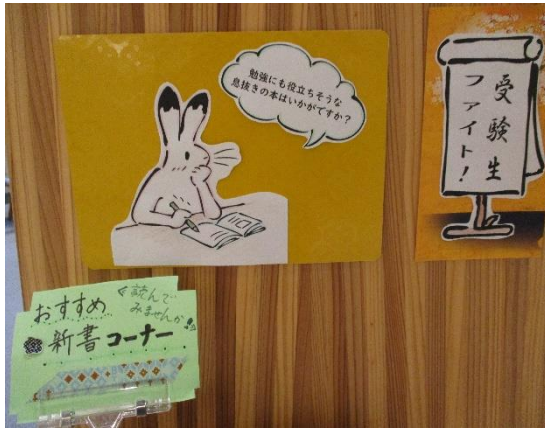 勉強にも役立ちそうな
息抜きの本はいかがですか?
受験生
ファイト!
おすすめ
読んで
みませんか
新書コーナー